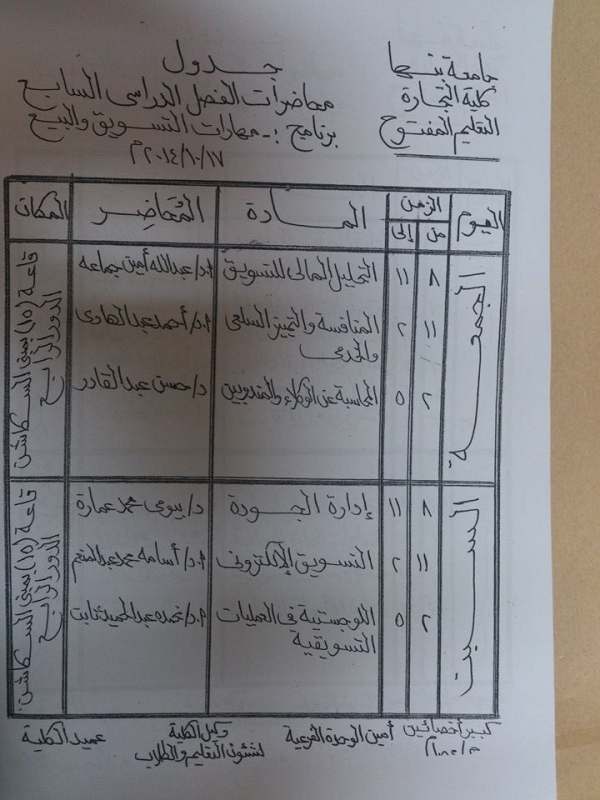 جامعة بنها
كلية التجارة
التعليم المفتوح
جدول
محاضرات الفصل الدراسى السابع
برنامج :- مهارات التسويق والبيع
٢٠١٤/١٠/١٧م
اليوم الزمن المادة المُحَاضِر المكان
من إلى
الجمعة
٨ ١١ التحليل المالى للتسويق أ.د/عبدالله أمين جماعه
١١ ٢ المنافسة والتميز السلعى أ.د/أحمد عبدالهادى
والخدمى
٢ ٥ المحاسبة عن الوكلاء والمندوبين د/حسن عبدالقادر
قاعة (١٥) بمبنى السكاشن
الدور الرابع
السبت
٨ ١١ إدارة الجودة د/بيومى محمد عمارة
١١ ٢ التسويق الإلكترونى أ.د/أسامه محمد عبدالمنعم
٢ ٥ اللوجستية فى العمليات أ.د/عبدالحميد ثابت
التسويقية
قاعة (١٥) بمبنى السكاشن
الدور الرابع
كبير أخصائين أمين الوحدة الفرعية وكيل الكلية عميد الكلية
لشئون التعليم والطلاب